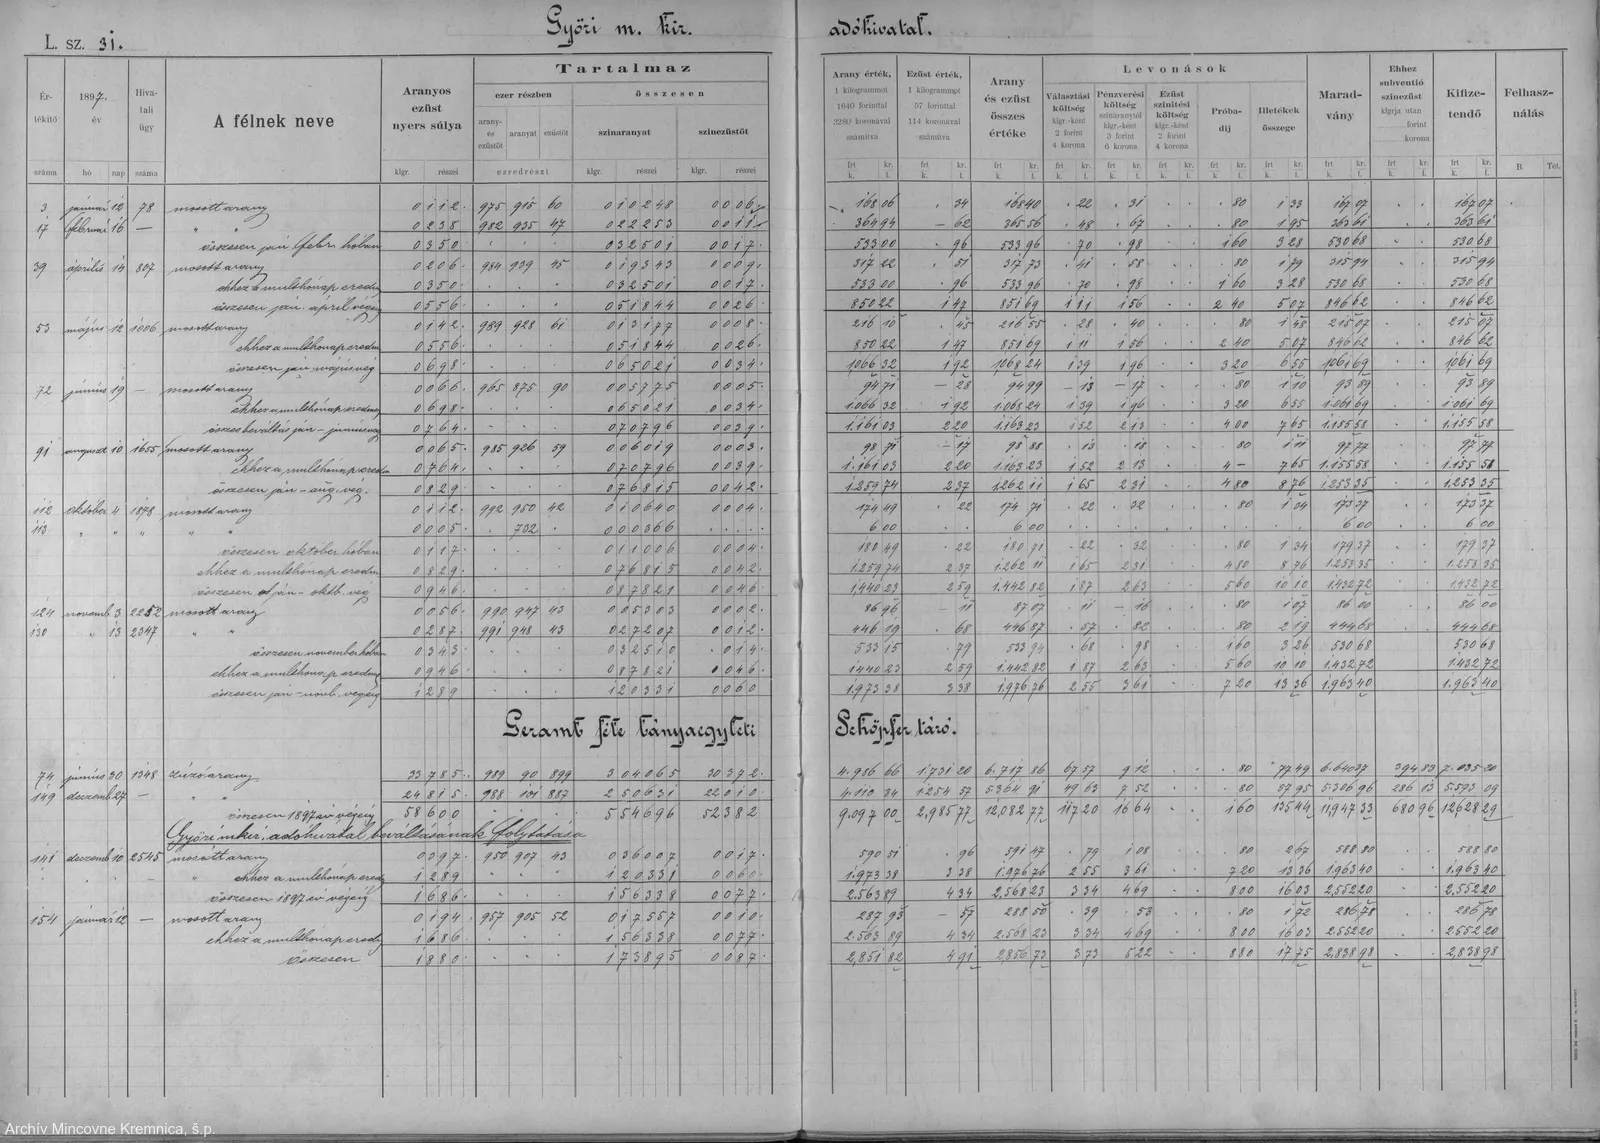 Győri m. kir. adóhivatal.
L. sz. 31.
Értékítő száma
1897. év
hó nap
Hivatali ügy száma
A félnek neve
Aranyos ezüst nyers súlya
klgr. részei
Tartalmaz
ezer részben
arany- és ezüstöt aranyat ezüstöt
ezredrészt
összesen
színaranyat színezüstöt
klgr. részei klgr. részei
Arany érték, 1 kilogrammot 1640 forinttal 3280 koronával számítva
Ezüst érték, 1 kilogrammot 57 forinttal 114 koronával számítva
Arany és ezüst összes értéke
Levonások
Választási költség klgr.-ként 2 forint 4 korona
Pénzverési költség színaranytól klgr.-ként 3 forint 6 korona
Ezüst színítési költség klgr.-ként 2 forint 4 korona
Próbadíj
Illetékek összege
Maradvány
Ehhez subventió színezüst klgrja után forint korona
Kifizetendő
Felhasználás
frt k. kr. f.
B. Tét.
3 január 12 78 mosott arany 0 112 975 915 60 0 10248 0 006 168 06 34 168 40 22 31 80 1 33 167 07 167 07
17 február 16 — " " 0 238 982 935 47 0 22253 0 011 364 94 — 62 365 56 48 67 80 1 95 363 61 363 61
összesen jan. febr. hóban 0 350 0 32501 0 017 533 00 96 533 96 70 98 1 60 3 28 530 68 530 68
39 április 14 807 mosott arany 0 206 984 939 45 0 19343 0 009 317 22 51 317 73 41 58 80 1 79 315 94 315 94
ehhez a multhónap eredm 0 350 0 32501 0 017 533 00 96 533 96 70 98 1 60 3 28 530 68 530 68
összesen ján. ápril végéig 0 556 0 51844 0 026 850 22 1 47 851 69 1 11 1 56 2 40 5 07 846 62 846 62
53 május 12 1006 mosott arany 0 142 989 928 61 0 13177 0 008 216 10 45 216 55 28 40 80 1 48 215 07 215 07
ehhez a multhónap eredm 0 556 0 51844 0 026 850 22 1 47 851 69 1 11 1 56 2 40 5 07 846 62 846 62
összesen ján. május vég 0 698 0 65021 0 034 1066 32 1 92 1068 24 1 39 1 96 3 20 6 55 1061 69 1061 69
72 június 19 — mosott arany 0 066 965 875 90 0 05775 0 005 94 71 — 28 94 99 — 13 — 17 80 1 10 93 89 93 89
ehhez a multhónap eredm 0 698 0 65021 0 034 1.066 32 1 92 1.068 24 1 39 1 96 3 20 6 55 1.061 69 1.061 69
összes beváltás ján – június vég 0 764 0 70796 0 039 1.161 03 2 20 1.163 23 1 52 2 13 4 00 7 65 1.155 58 1.155 58
91 auguszt 10 1655 mosott arany 0 065 985 926 59 0 06019 0 003 98 71 — 17 98 88 13 18 80 1 11 97 77 97 77
ehhez a multhónap eredm 0 764 0 70796 0 039 1.161 03 2 20 1.163 23 1 52 2 13 4 — 7 65 1.155 58 1.155 58
összesen ján – aug. vég. 0 829 0 76815 0 042 1.259 74 2 37 1.262 11 1 65 2 31 4 80 8 76 1.253 35 1.253 35
112 október 4 1878 mosott arany 0 112 992 950 42 0 10640 0 004 174 49 22 174 71 22 32 80 1 34 173 37 173 37
113 " " " " " 0 005 732 0 00366 6 00 6 00 6 00 6 00
összesen október hóban 0 117 0 11006 0 004 180 49 22 180 71 22 32 80 1 34 179 37 179 37
ehhez a multhónap eredm 0 829 0 76815 0 042 1.259 74 2 37 1.262 11 1 65 2 31 4 80 8 76 1.253 35 1.253 35
összesen ján – oktb. vég 0 946 0 87821 0 046 1.440 23 2 59 1.442 82 1 87 2 63 5 60 10 10 1.432 72 1.432 72
124 novemb 3 2252 mosott arany 0 056 990 947 43 0 05303 0 002 86 96 — 11 87 07 11 — 16 80 1 07 86 00 86 00
130 " 13 2347 " " 0 287 991 948 43 0 27207 0 012 446 19 68 446 87 57 82 80 2 19 444 68 444 68
összesen november hóban 0 343 0 32510 014 533 15 79 533 94 68 98 1 60 3 26 530 68 530 68
ehhez a multhónap eredm 0 946 0 87821 046 1440 23 2 59 1.442 82 1 87 2 63 5 60 10 10 1.432 72 1.432 72
összesen ján – novb. végéig 1 289 1 20331 0 060 1.973 38 3 38 1.976 76 2 55 3 61 7 20 13 36 1.963 40 1.963 40
Geramt féle bányaegyleti Schöpfer táró.
74 június 30 1348 zúzóarany 33 785 989 90 899 3 04065 30 372 4.986 66 1.731 20 6.717 86 67 57 9 12 80 77 49 6.640 37 394 83 7.035 20
149 deczemb 27 — " " 24 815 988 101 887 2 50631 22 010 4.110 34 1254 57 5364 91 49 63 7 52 80 57 95 5306 96 286 13 5.593 09
összesen 1897 év végéig 58 600 5 54696 52 382 9.097 00 2.985 77 12,082 77 117 20 16 64 1 60 135 44 11,947 33 680 96 12628 29
Győri m kir. adóhivatal beváltásának folytatása
141 deczemb 10 2545 mosott arany 0 397 950 907 43 0 36007 0 017 590 51 96 591 47 79 1 08 80 2 67 588 80 588 80
" ehhez a multhónap ered 1 289 1 20331 0 060 1.973 38 3 38 1.976 76 2 55 3 61 7 20 13 36 1.963 40 1.963 40
összesen 1897 év végéig 1 686 1 56338 0 077 2.563 89 4 34 2.568 23 3 34 4 69 8 00 16 03 2,552 20 2,552 20
154 január 12 — mosott arany 0 194 957 905 52 0 17557 0 010 287 93 — 57 288 50 39 53 80 1 72 286 78 286 78
ehhez a multhónap eredm 1 686 1 56338 0 077 2.563 89 4 34 2.568 23 3 34 4 69 8 00 16 03 2.552 20 2.552 20
összesen 1 880 1 73895 0 087 2,851 82 4 91 2,856 73 3 73 5 22 8 80 17 75 2,838 98 2,838 98
Archív Mincovne Kremnica, š.p.